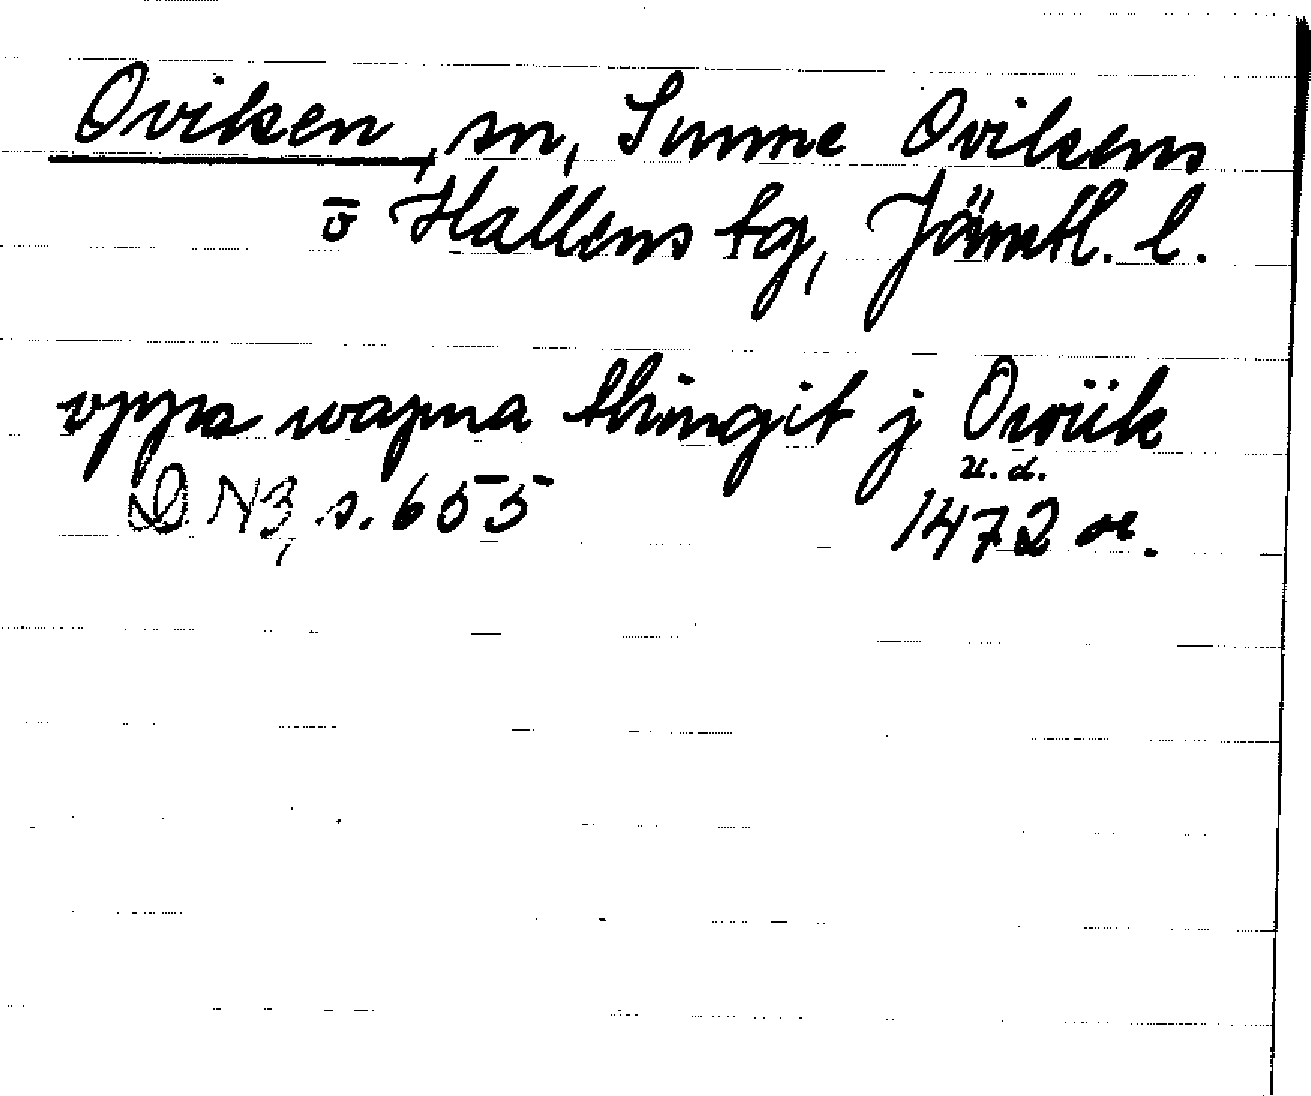 Oviken, sn, Sunne Ovikens
o Hallens tg, Jämtl. l.
vppa wapna thingit j Owiik
u. d.
DN3, s. 655 1472 or.